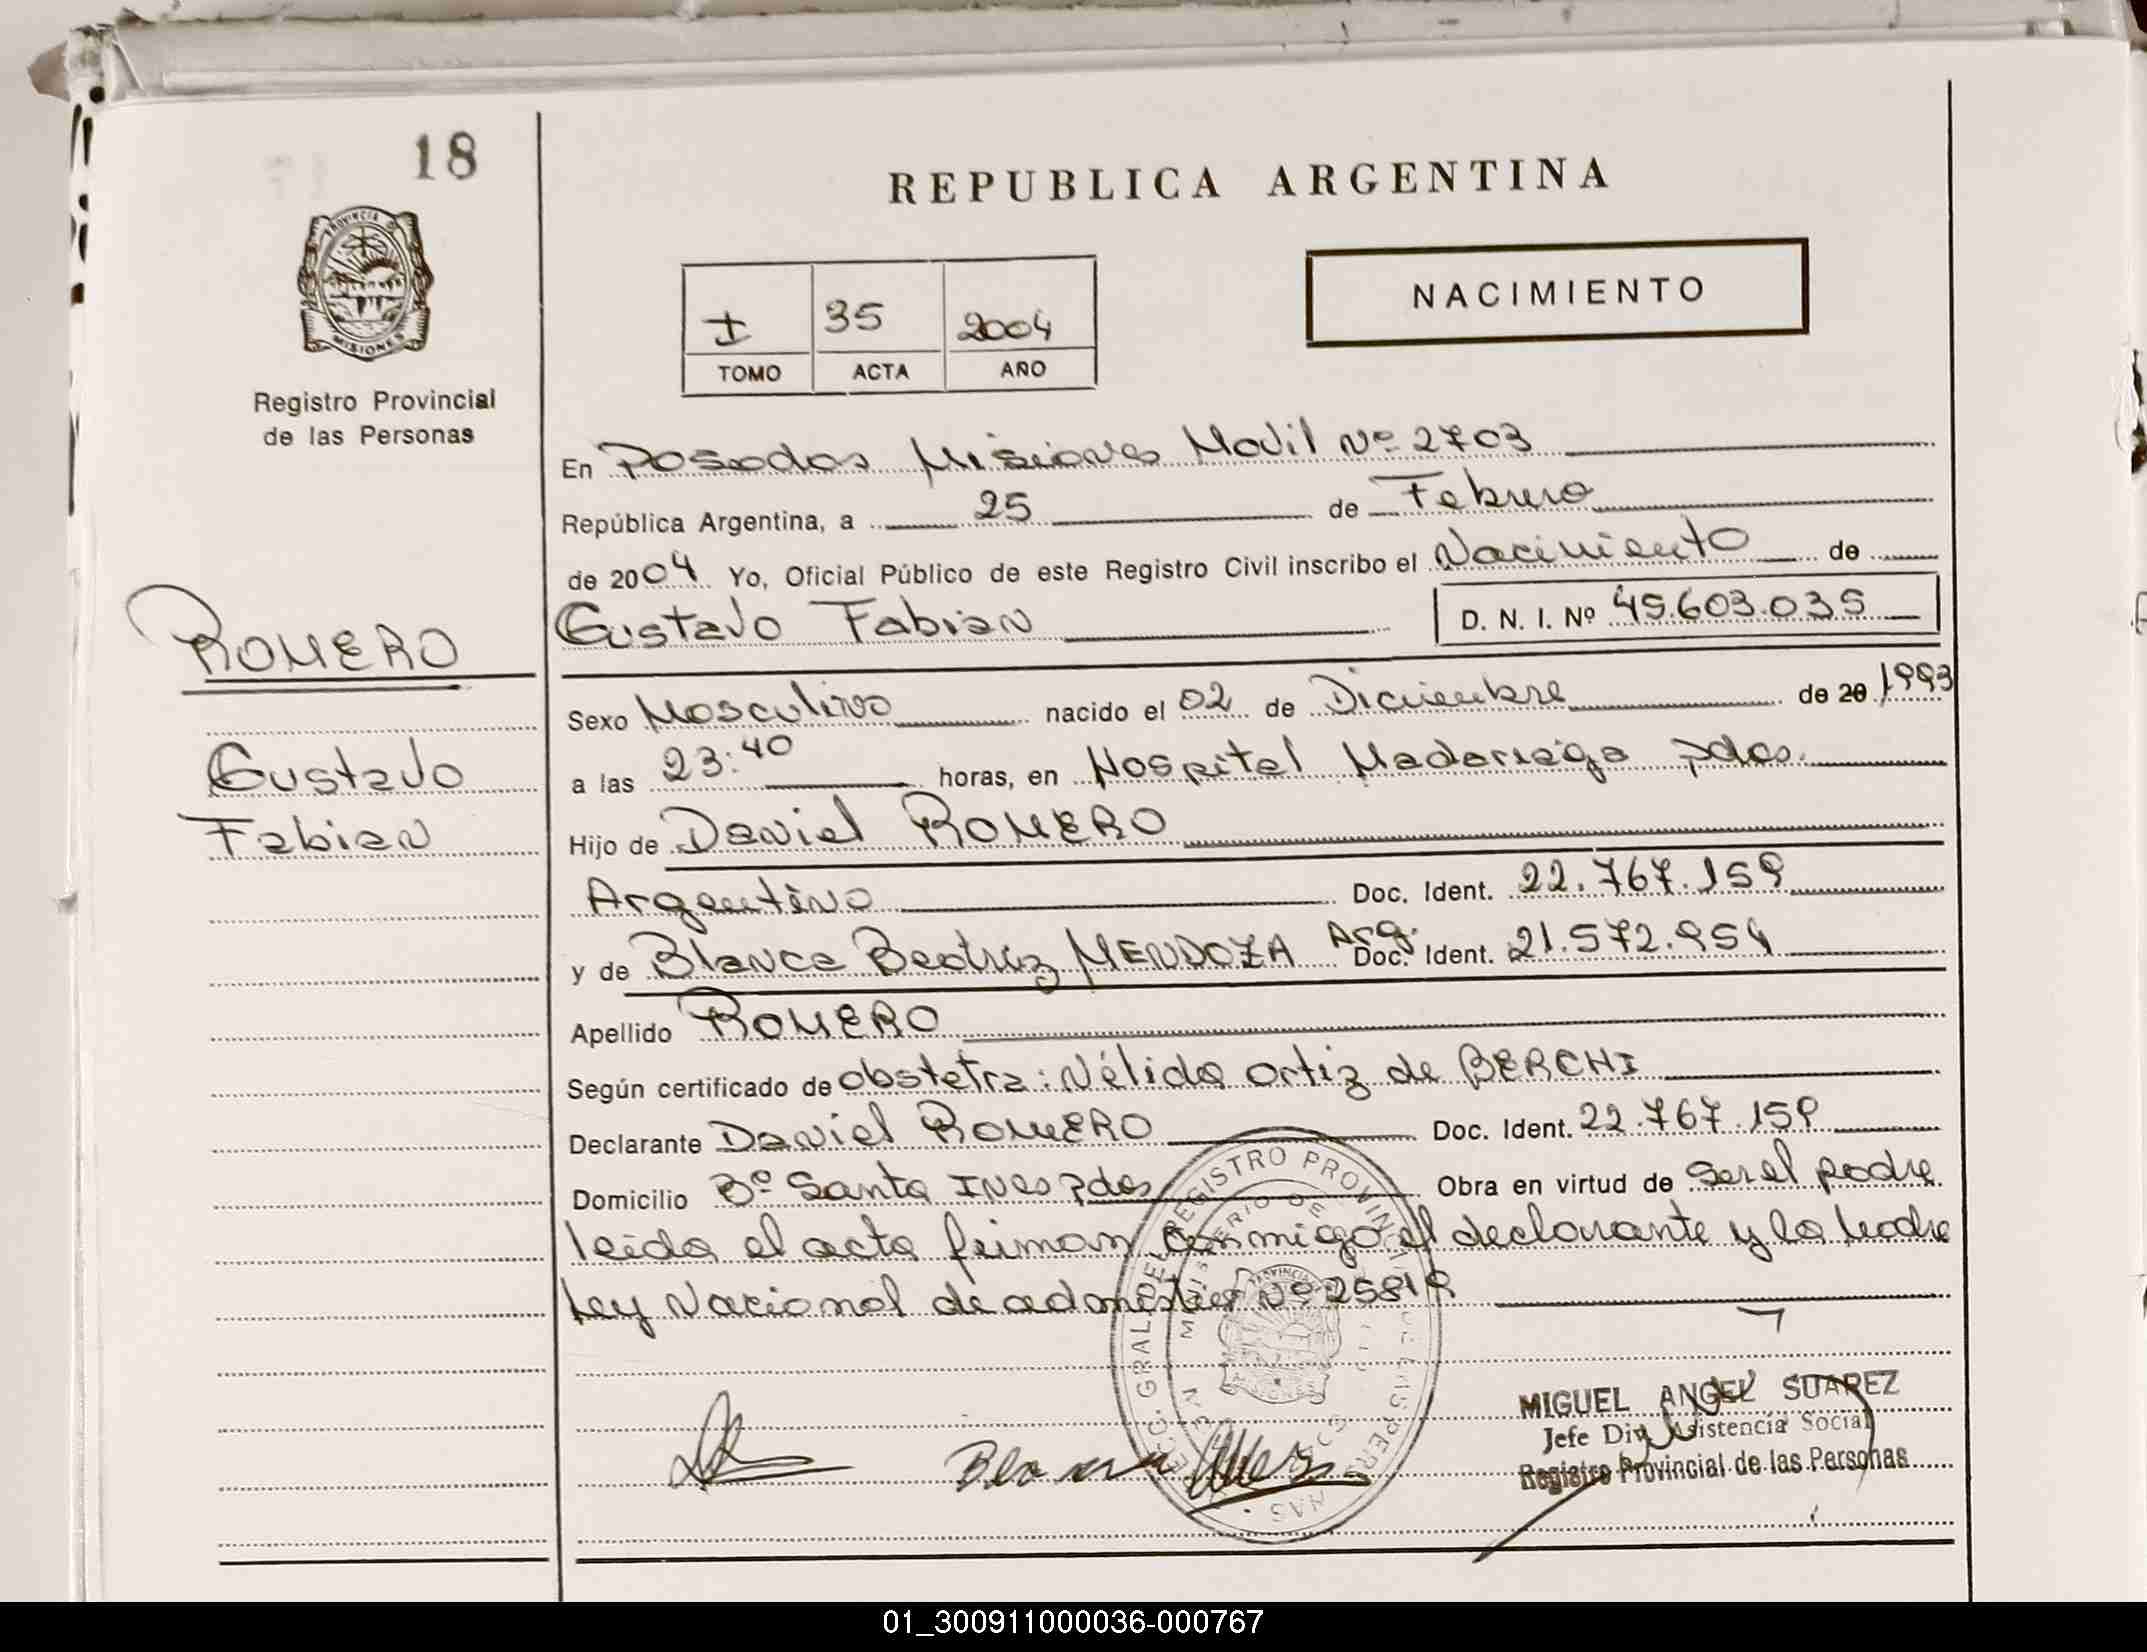 18
REPUBLICA ARGENTINA
PROVINCIA DE
MISIONES
Registro Provincial
de las Personas
I 35 2004
TOMO ACTA AÑO
NACIMIENTO
En Posadas Misiones Movil Nº 2703
República Argentina, a 25 de Febrero
de 2004 Yo, Oficial Público de este Registro Civil inscribo el Nacimiento de
Gustavo Fabian D. N. I. Nº 45.603.035
ROMERO
Gustavo
Fabian
Sexo Masculino nacido el 02 de Diciembre de 20 1993
a las 23:40 horas, en Hospital Madariaga pdas.
Hijo de Daniel ROMERO
Argentino Doc. Ident. 22.767.159
y de Blanca Beatriz MENDOZA Arg. Doc. Ident. 21.572.954
Apellido ROMERO
Según certificado de obstetra: Nélida Ortiz de BERCHI
Declarante Daniel ROMERO Doc. Ident. 22.767.159
Domicilio Bº Santa Ines pdas Obra en virtud de ser el padre
leida el acta firman conmigo el declarante y la madre
Ley Nacional de Nº 25819
MIGUEL ANGEL SUAREZ
Jefe Div. Asistencia Social
Registro Provincial de las Personas
01_300911000036-000767